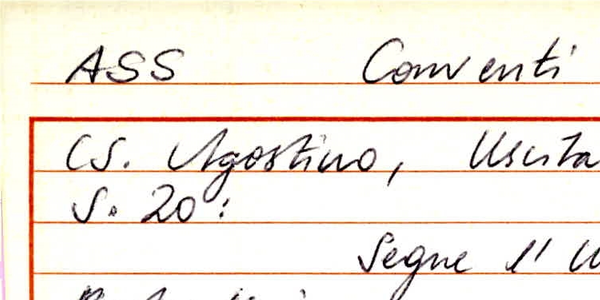 ASS Conventi
(S. Agostino, Uscita
S. 20:
Segue l'